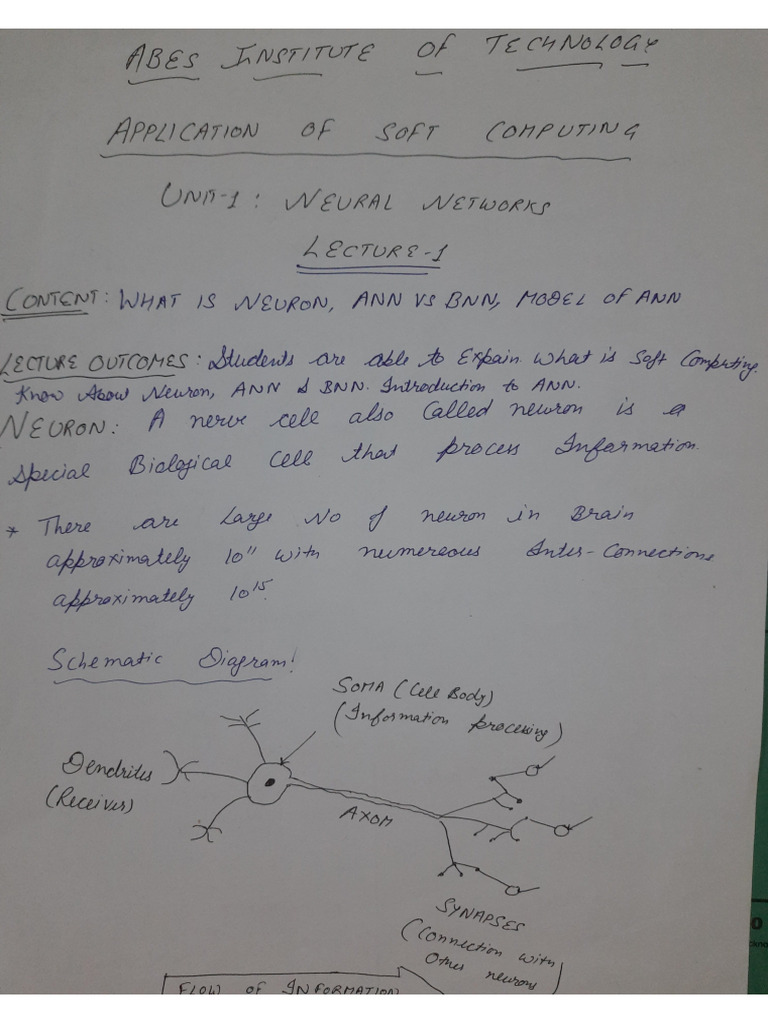 ABES INSTITUTE OF TECHNOLOGY
APPLICATION OF SOFT COMPUTING
UNIT-1: NEURAL NETWORKS
LECTURE-1
CONTENT: WHAT IS NEURON, ANN VS BNN, MODEL OF ANN
LECTURE OUTCOMES: Students are able to Expain what is Soft Computing.
Know About Neuron, ANN & BNN. Introduction to ANN.
NEURON: A nerve cell also called neuron is a
Special Biological Cell that process Information.
* There are Large No of neuron in Brain
approximately 10¹¹ with numereous Inter-Connections
approximately 10¹⁵.
Schematic Diagram!
SOMA (Cell Body)
(Information processing)
Dendrites
(Receives)
AXOM
SYNAPSES
(Connection with
Other neurons)
FLOW OF INFORMATION
0